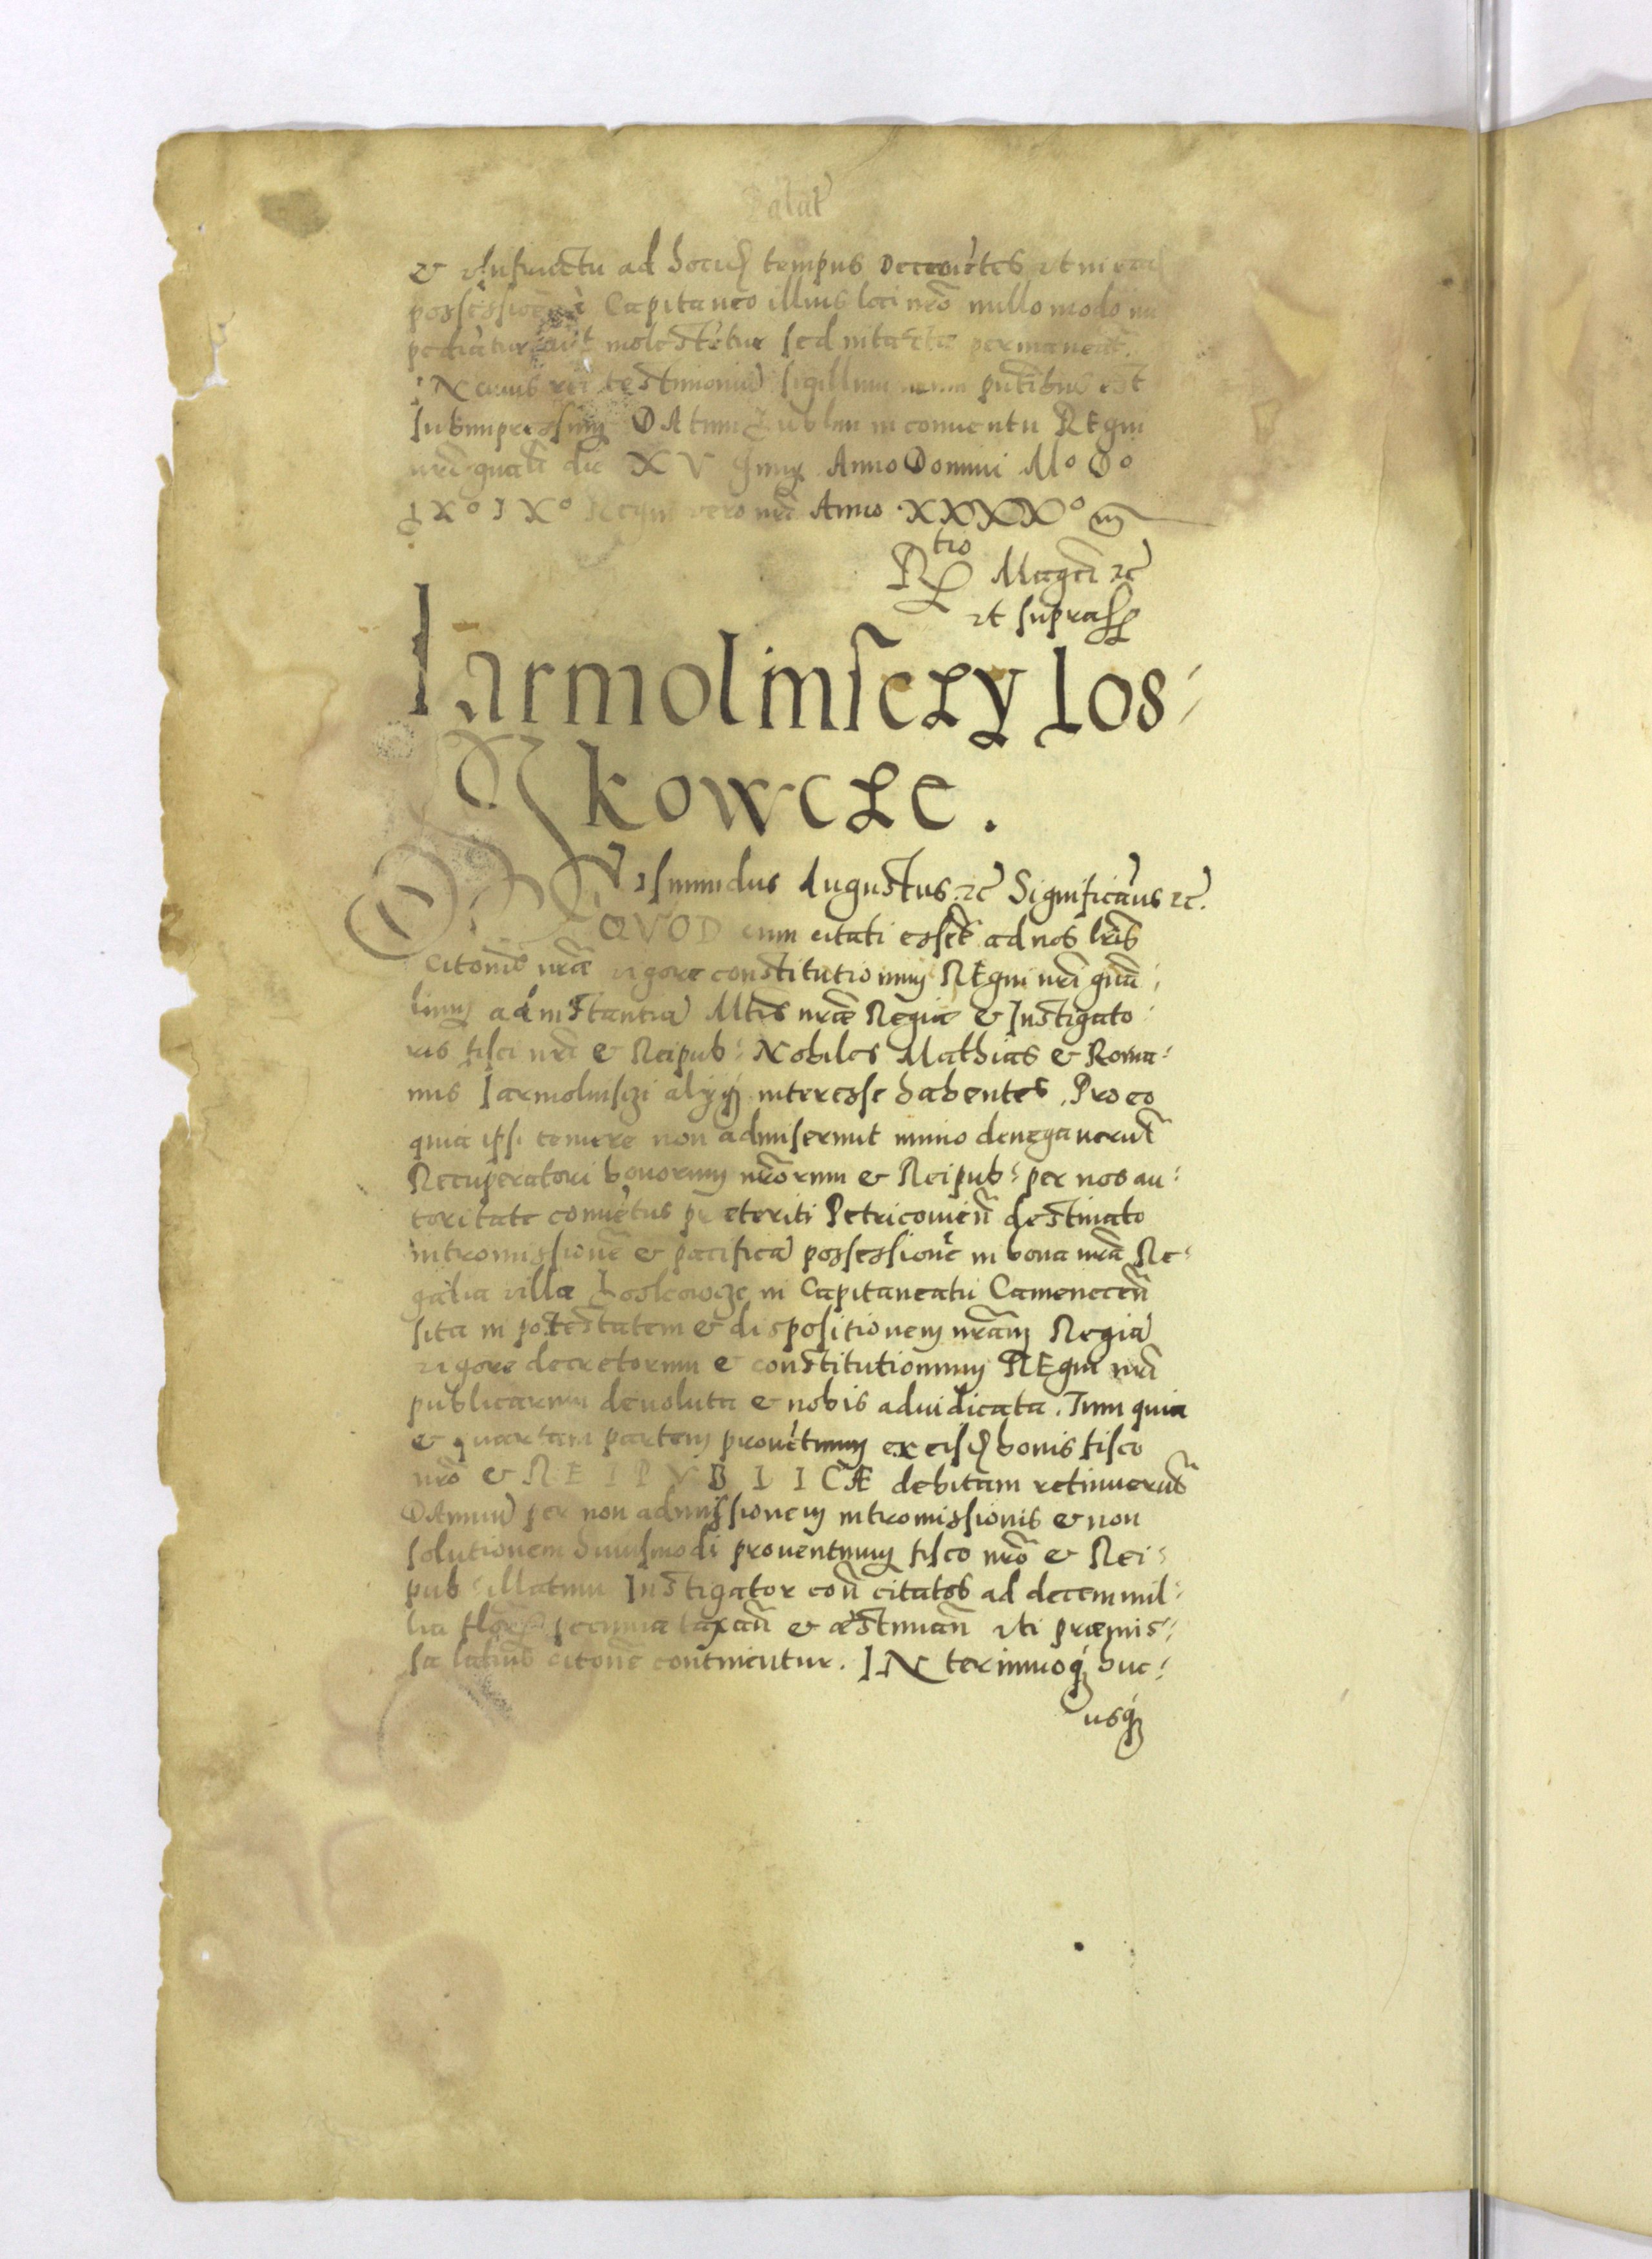 Palat̃
& vsufructu ad hocusq̃ tempus Decedẽtes vt in ea
possessione à Capitaneo illius loci nr̃o nullo modo im
pediãtur aut molestẽtur sed intactæ permaneãt.
IN cuius rei testimoniũ sigillum nr̃um pñtibus est
subimpressum DAtum Lublini in conuentu REgni
nr̃i gñali die XV Junij Anno Domini M° D°
LX° IX° Regni vero nr̃i Anno XXXX°
Rtio Magci ꝛc̃
vt supra
Iarmolinsczy Los⸗
kowcze.
SIgismundus Augustus ꝛc̃ Significãus ꝛc̃.
QVOD cum citati essẽt ad nos lr̃is
Citõnis nr̃æ vigore constitutionum REgni nr̃i gñã⸗
lium ad instantiã Mtis nr̃æ Regiæ & Instigato⸗
ris fisci nr̃i & Reipub⸗ Nobiles Mathias & Roma⸗
nus Iarmolinsczi alijq̃ interesse habentes. Pro eo
quia ipsi temere non admiserunt immo denegauerũt
Recuperatori bonorum nr̃orum & Reipub⸗ per nos au⸗
toritate conuẽtus præteriti Petricouieñ destinato
intromissionẽ & pacificã possessionẽ in bona nr̃a Re⸗
galia villæ Loskowcze in Capitaneatu Camenecen̄
sita in potestatem & dispositionem nr̃am Regiã
vigore decretorum & constitutionum REgni nr̃i
publicarum deuoluta & nobis adiudicata. Tum quia
& quartam partem prouẽtuum ex eisd̃ bonis fisco
nr̃o & REIPVBLICÆ debitam retinuerũt
DAmnũ per non admissionem intromissionis & non
solutionem huiusmodi prouentuum fisco nr̃o & Rei⸗
pub⸗ illatum Instigator con̄ citatos ad decem mil⸗
lia flor̃ pecuniæ taxan̄ & æstiman̄ vti præmis⸗
sa latius citõne continentur. IN terminoq̃ huc⸗
usq̃